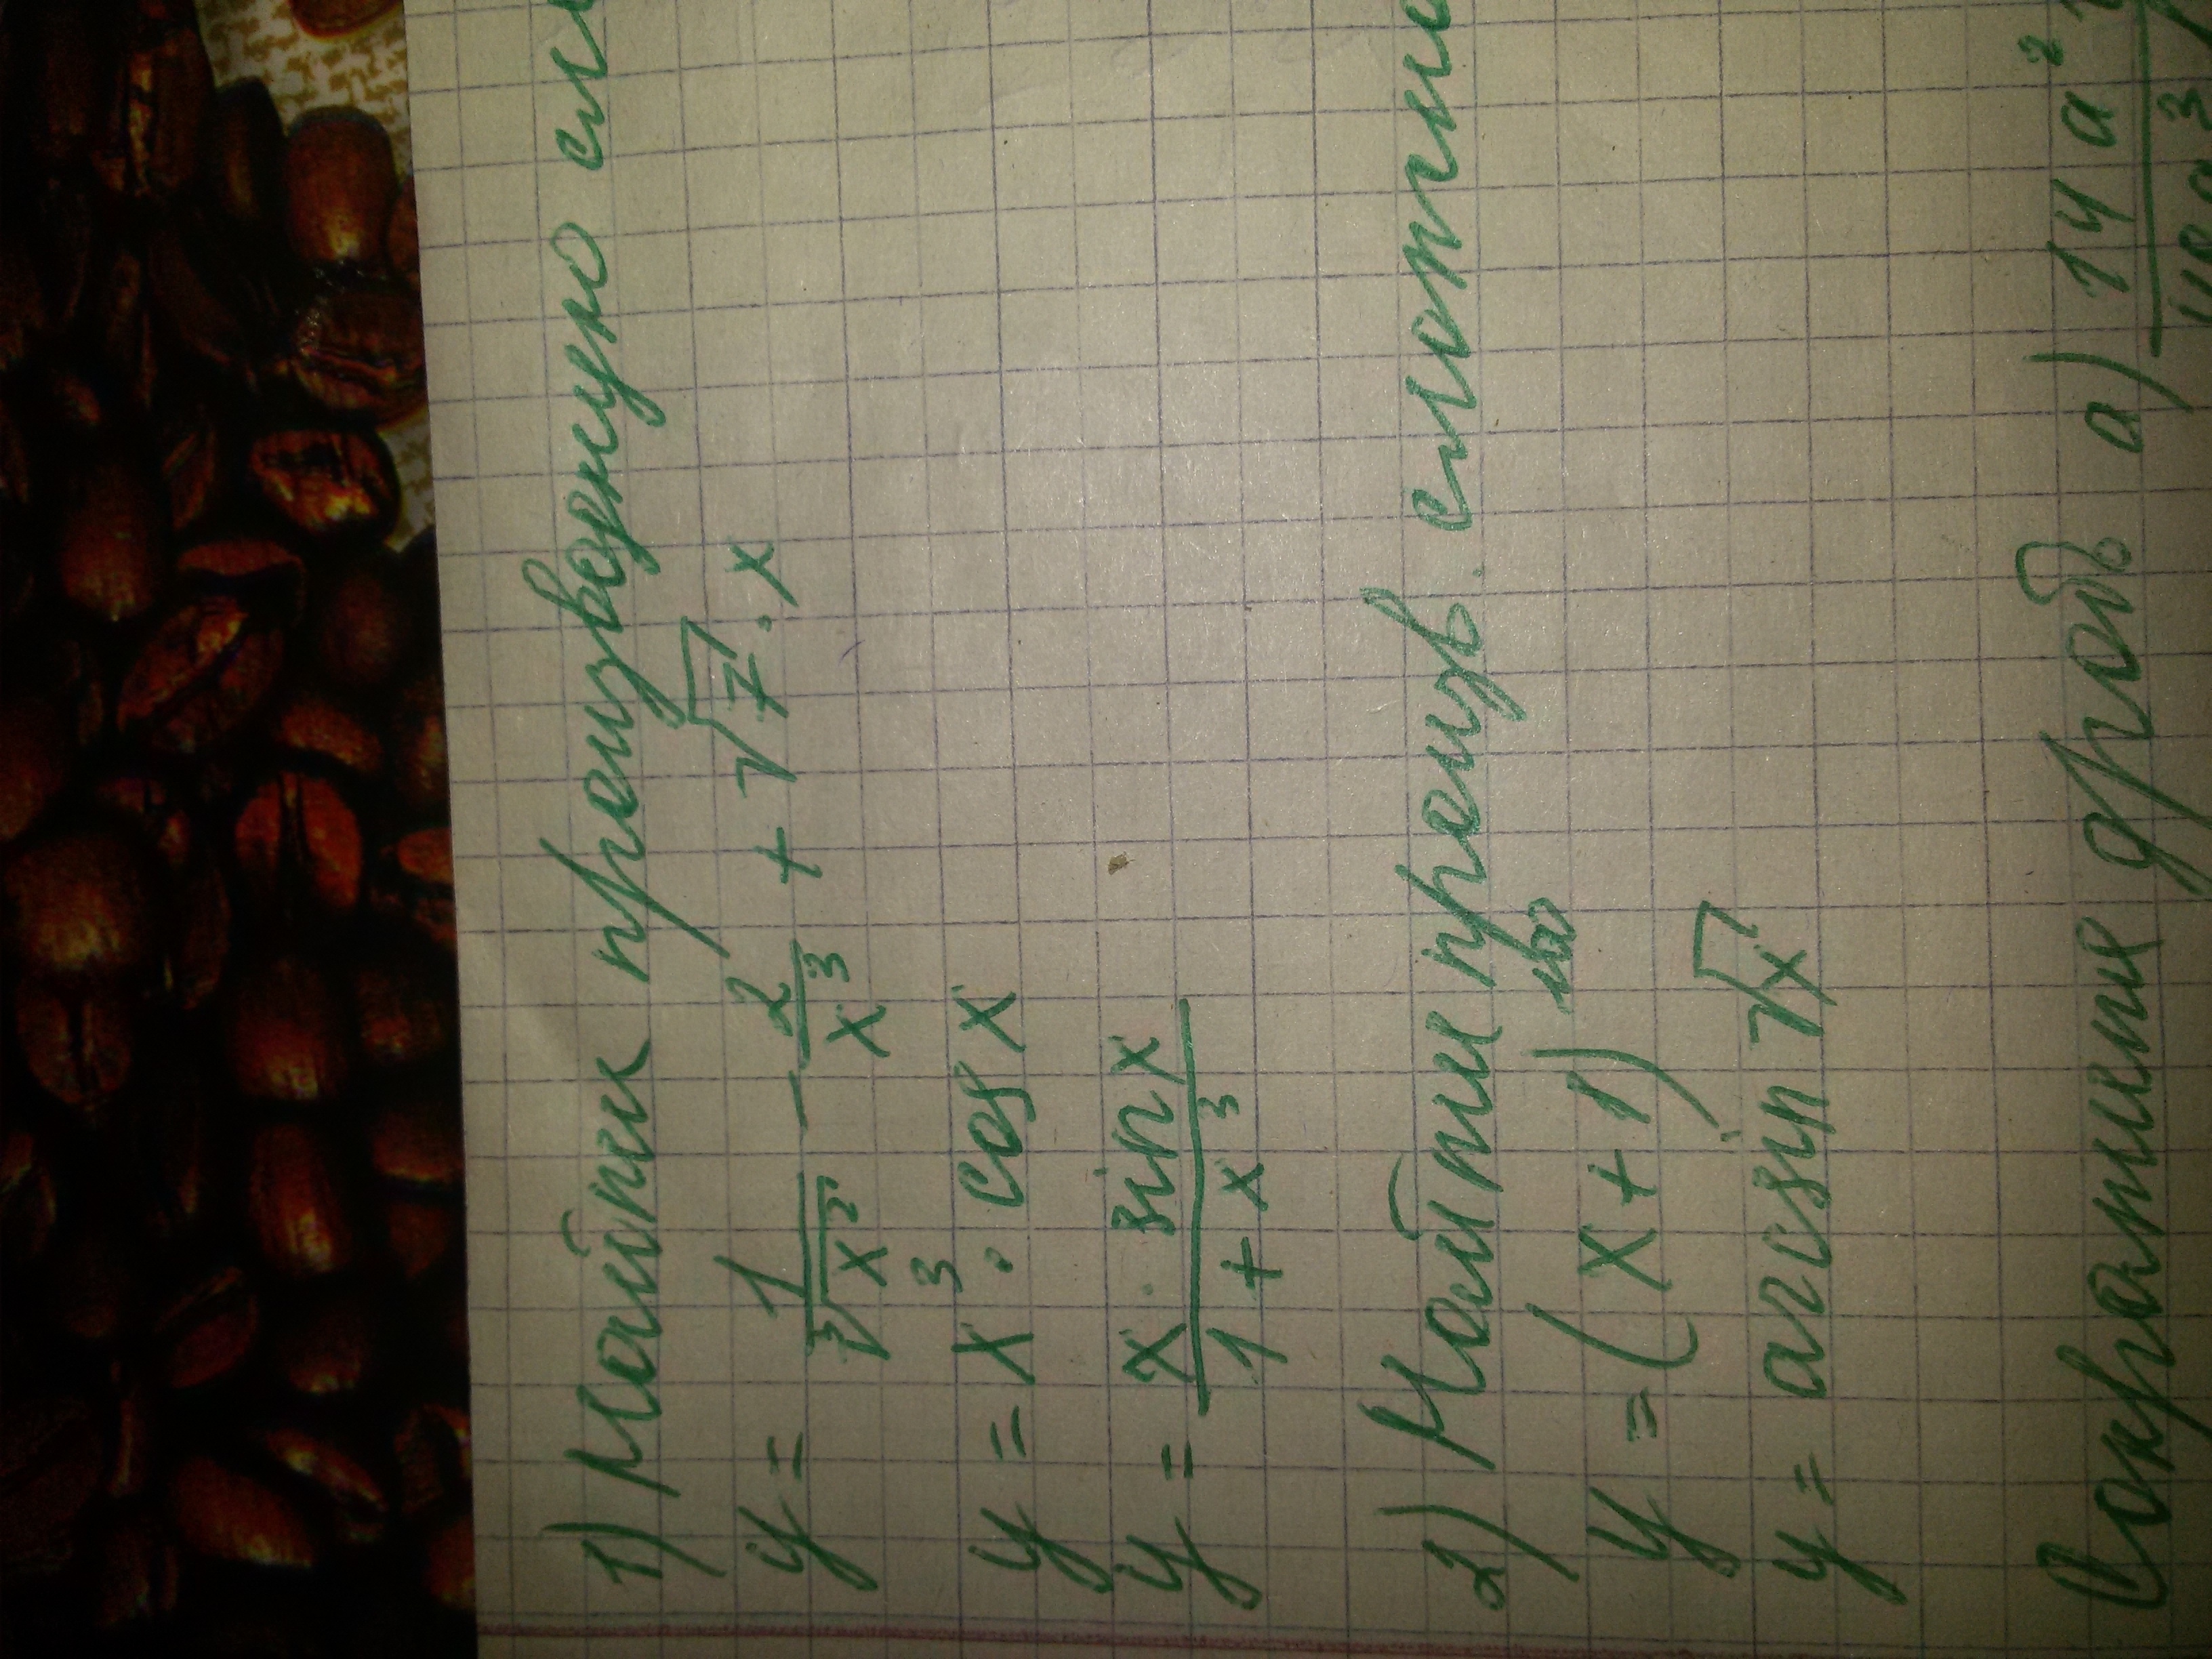 1) Найти производную
y = 1/∛x² - 2/x³ + √7 · x
y = x³ · cos x
y = x · sin x / 1 + x³
2) Найти произв.
y = (x + 1)¹⁰⁰
y = arcsin √x
Сократите дробь а) 14a²